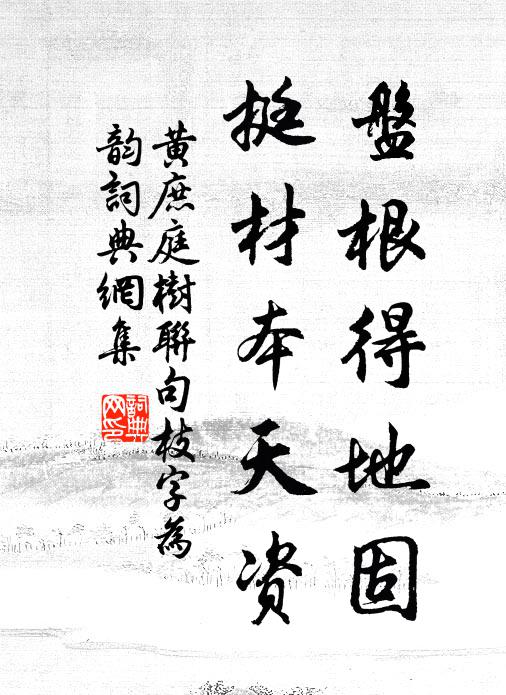 盤根得地固
挺材本天资
黄庶庭樹聯句枝字為
韵詞典網集
詞典
网印